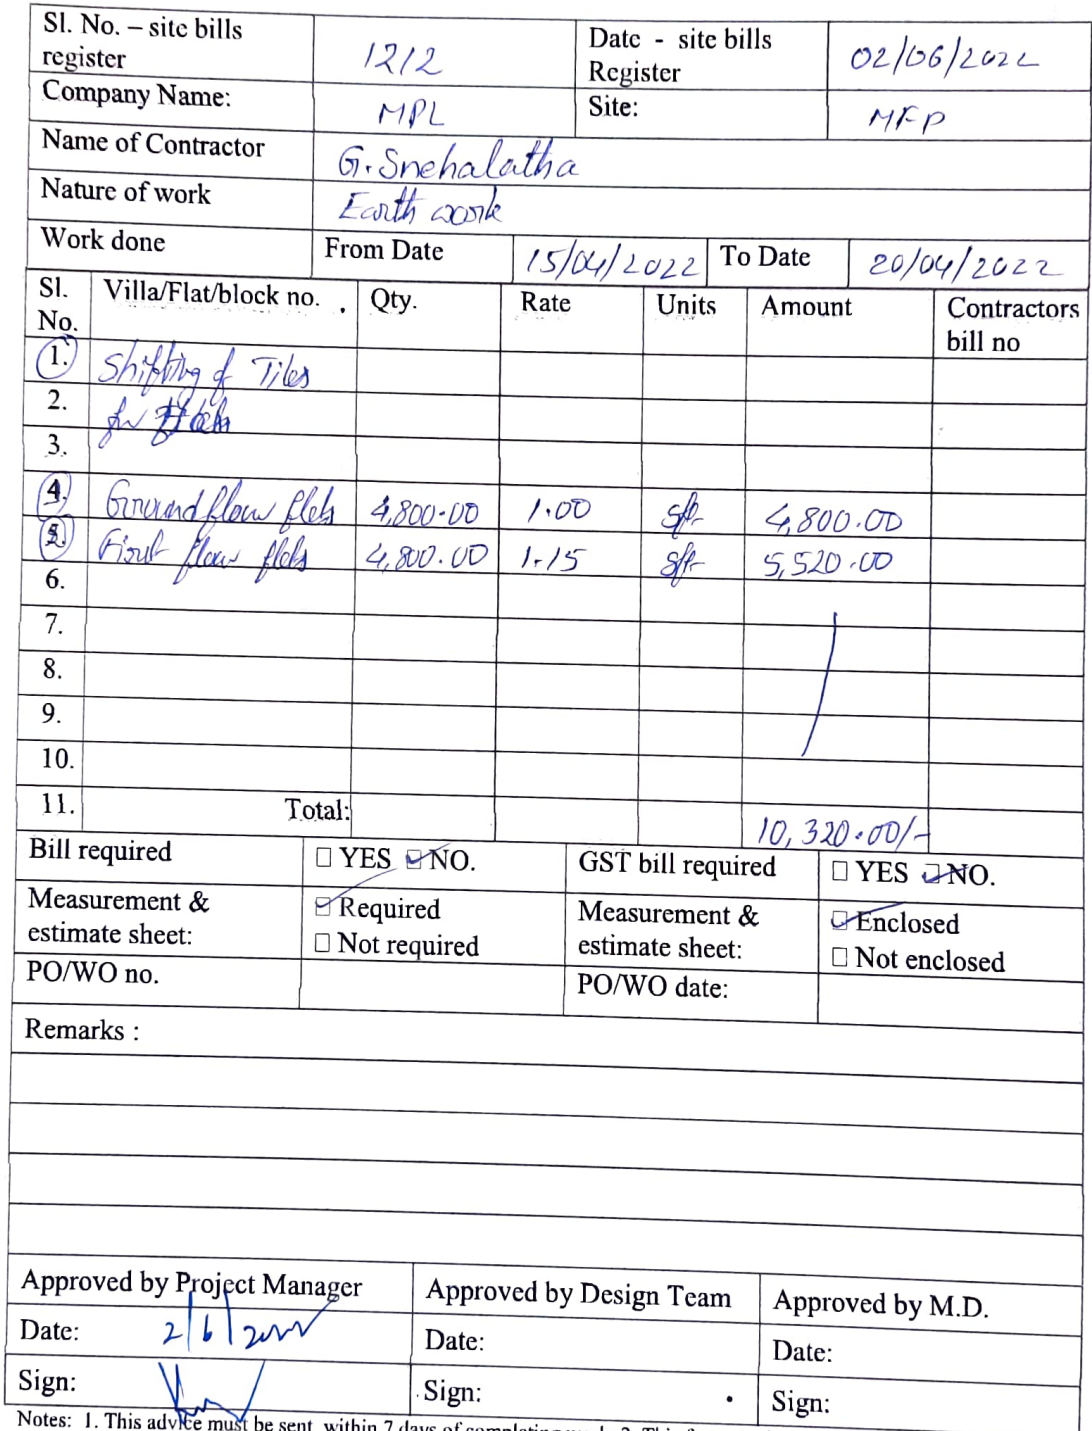 Sl. No. – site bills register 1212 Date - site bills Register 02/06/2022
Company Name: MPL Site: MFP
Name of Contractor G. Snehalatha
Nature of work Earth work
Work done From Date 15/04/2022 To Date 20/04/2022
Sl. No. Villa/Flat/block no. Qty. Rate Units Amount Contractors bill no
1. Shifting of Tiles
2. for
3.
4. Ground floor flats 4,800.00 1.00 sft 4,800.00
5. First floor flats 4,800.00 1.15 sft 5,520.00
6.
7.
8.
9.
10.
11. Total: 10,320.00/-
Bill required □ YES ☑ NO. GST bill required □ YES ☑ NO.
Measurement & estimate sheet: ☑ Required Measurement & estimate sheet: ☑ Enclosed
□ Not required □ Not enclosed
PO/WO no. PO/WO date:
Remarks :
Approved by Project Manager Approved by Design Team Approved by M.D.
Date: 2/6/2022 Date: Date:
Sign: Sign: Sign:
Notes: 1. This advice must be sent within 7 days of completing